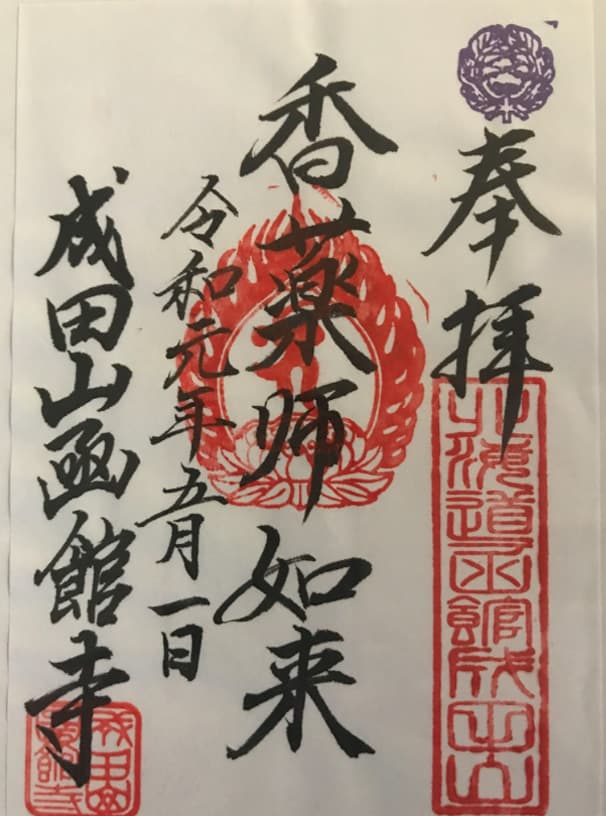 奉拝
北海道函館成田山
香薬師如来
令和元年五月一日
成田山凾館寺
成田山
函館寺